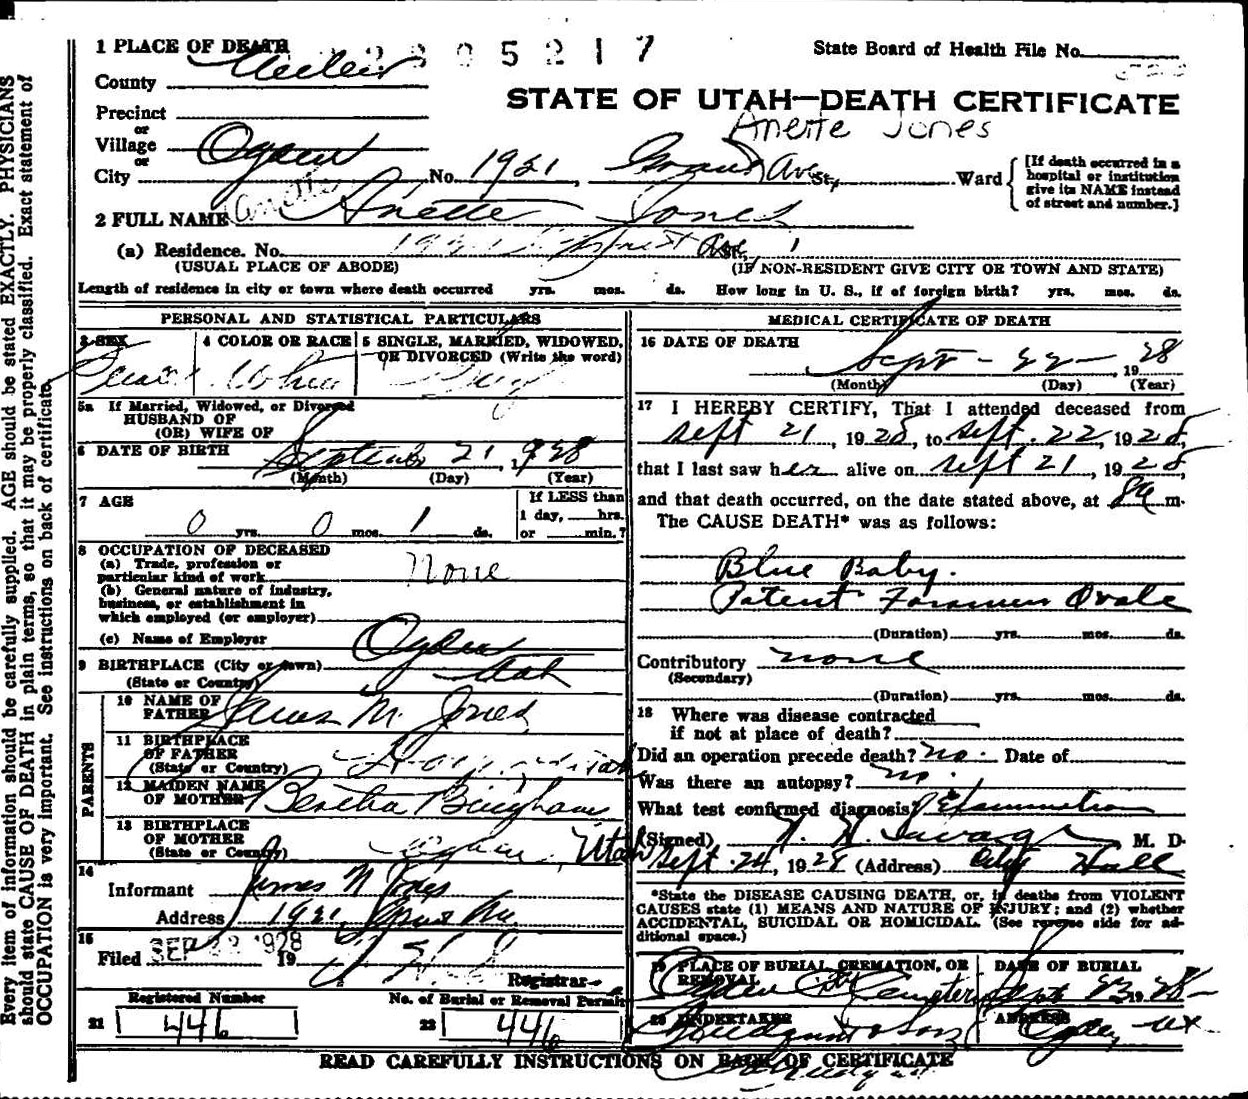 1 PLACE OF DEATH
5 2 1 7
State Board of Health File No.
County
STATE OF UTAH—DEATH CERTIFICATE
Precinct
Anette Jones
or
Village
or
City Ogden No. 1921 Grant Ave St, Ward
[If death occurred in a hospital or institution give its NAME instead of street and number.]
2 FULL NAME Anette Jones
(a) Residence. No. Ave St,
(USUAL PLACE OF ABODE) (IF NON-RESIDENT GIVE CITY OR TOWN AND STATE)
Length of residence in city or town where death occurred yrs. mos. ds. How long in U. S., if of foreign birth? yrs. mos. ds.
PERSONAL AND STATISTICAL PARTICULARS
3 SEX
4 COLOR OR RACE
5 SINGLE, MARRIED, WIDOWED, OR DIVORCED (Write the word)
5a If Married, Widowed, or Divorced
HUSBAND OF
(OR) WIFE OF
6 DATE OF BIRTH September 21 1928
(Month) (Day) (Year)
7 AGE
0 yrs. 0 mos. 1 ds.
If LESS than
1 day, hrs.
or min.?
8 OCCUPATION OF DECEASED
(a) Trade, profession or
particular kind of work None
(b) General nature of industry,
business, or establishment in
which employed (or employer)
(c) Name of Employer
9 BIRTHPLACE (City or town) Ogden
(State or Country) Utah
PARENTS
10 NAME OF FATHER James M. Jones
11 BIRTHPLACE OF FATHER
(State or Country) Utah
12 MAIDEN NAME OF MOTHER Bertha Bingham
13 BIRTHPLACE OF MOTHER
(State or Country) Utah
14
Informant James M Jones
Address 1921 Grant Ave
15
Filed SEP 1928 19
Registrar
Registered Number
No. of Burial or Removal Permit
21 446
22 446
MEDICAL CERTIFICATE OF DEATH
16 DATE OF DEATH
Sept - 22 - , 19 28
(Month) (Day) (Year)
17 I HEREBY CERTIFY, That I attended deceased from
Sept 21, 1928, to Sept. 22, 1928,
that I last saw her alive on Sept 21, 1928,
and that death occurred, on the date stated above, at 8 a m.
The CAUSE DEATH* was as follows:
Blue Baby.
Patent Foramen Ovale
(Duration) yrs. mos. ds.
Contributory none
(Secondary)
(Duration) yrs. mos. ds.
18 Where was disease contracted
if not at place of death?
Did an operation precede death? no. Date of
Was there an autopsy? no.
What test confirmed diagnosis? Examination
(Signed) M. D.
Sept. 24, 1928 (Address) City Hall
*State the DISEASE CAUSING DEATH, or, in deaths from VIOLENT
CAUSES state (1) MEANS AND NATURE OF INJURY; and (2) whether
ACCIDENTAL, SUICIDAL OR HOMICIDAL. (See reverse side for ad-
ditional space.)
19 PLACE OF BURIAL, CREMATION, OR REMOVAL
DATE OF BURIAL
Ogden City Cemetery Sept 23 1928
20 UNDERTAKER
ADDRESS
& Sons Ogden,
READ CAREFULLY INSTRUCTIONS ON BACK OF CERTIFICATE
Every item of information should be carefully supplied. AGE should be stated EXACTLY. PHYSICIANS
should state CAUSE OF DEATH in plain terms, so that it may be properly classified. Exact statement of
OCCUPATION is very important. See instructions on back of certificate.